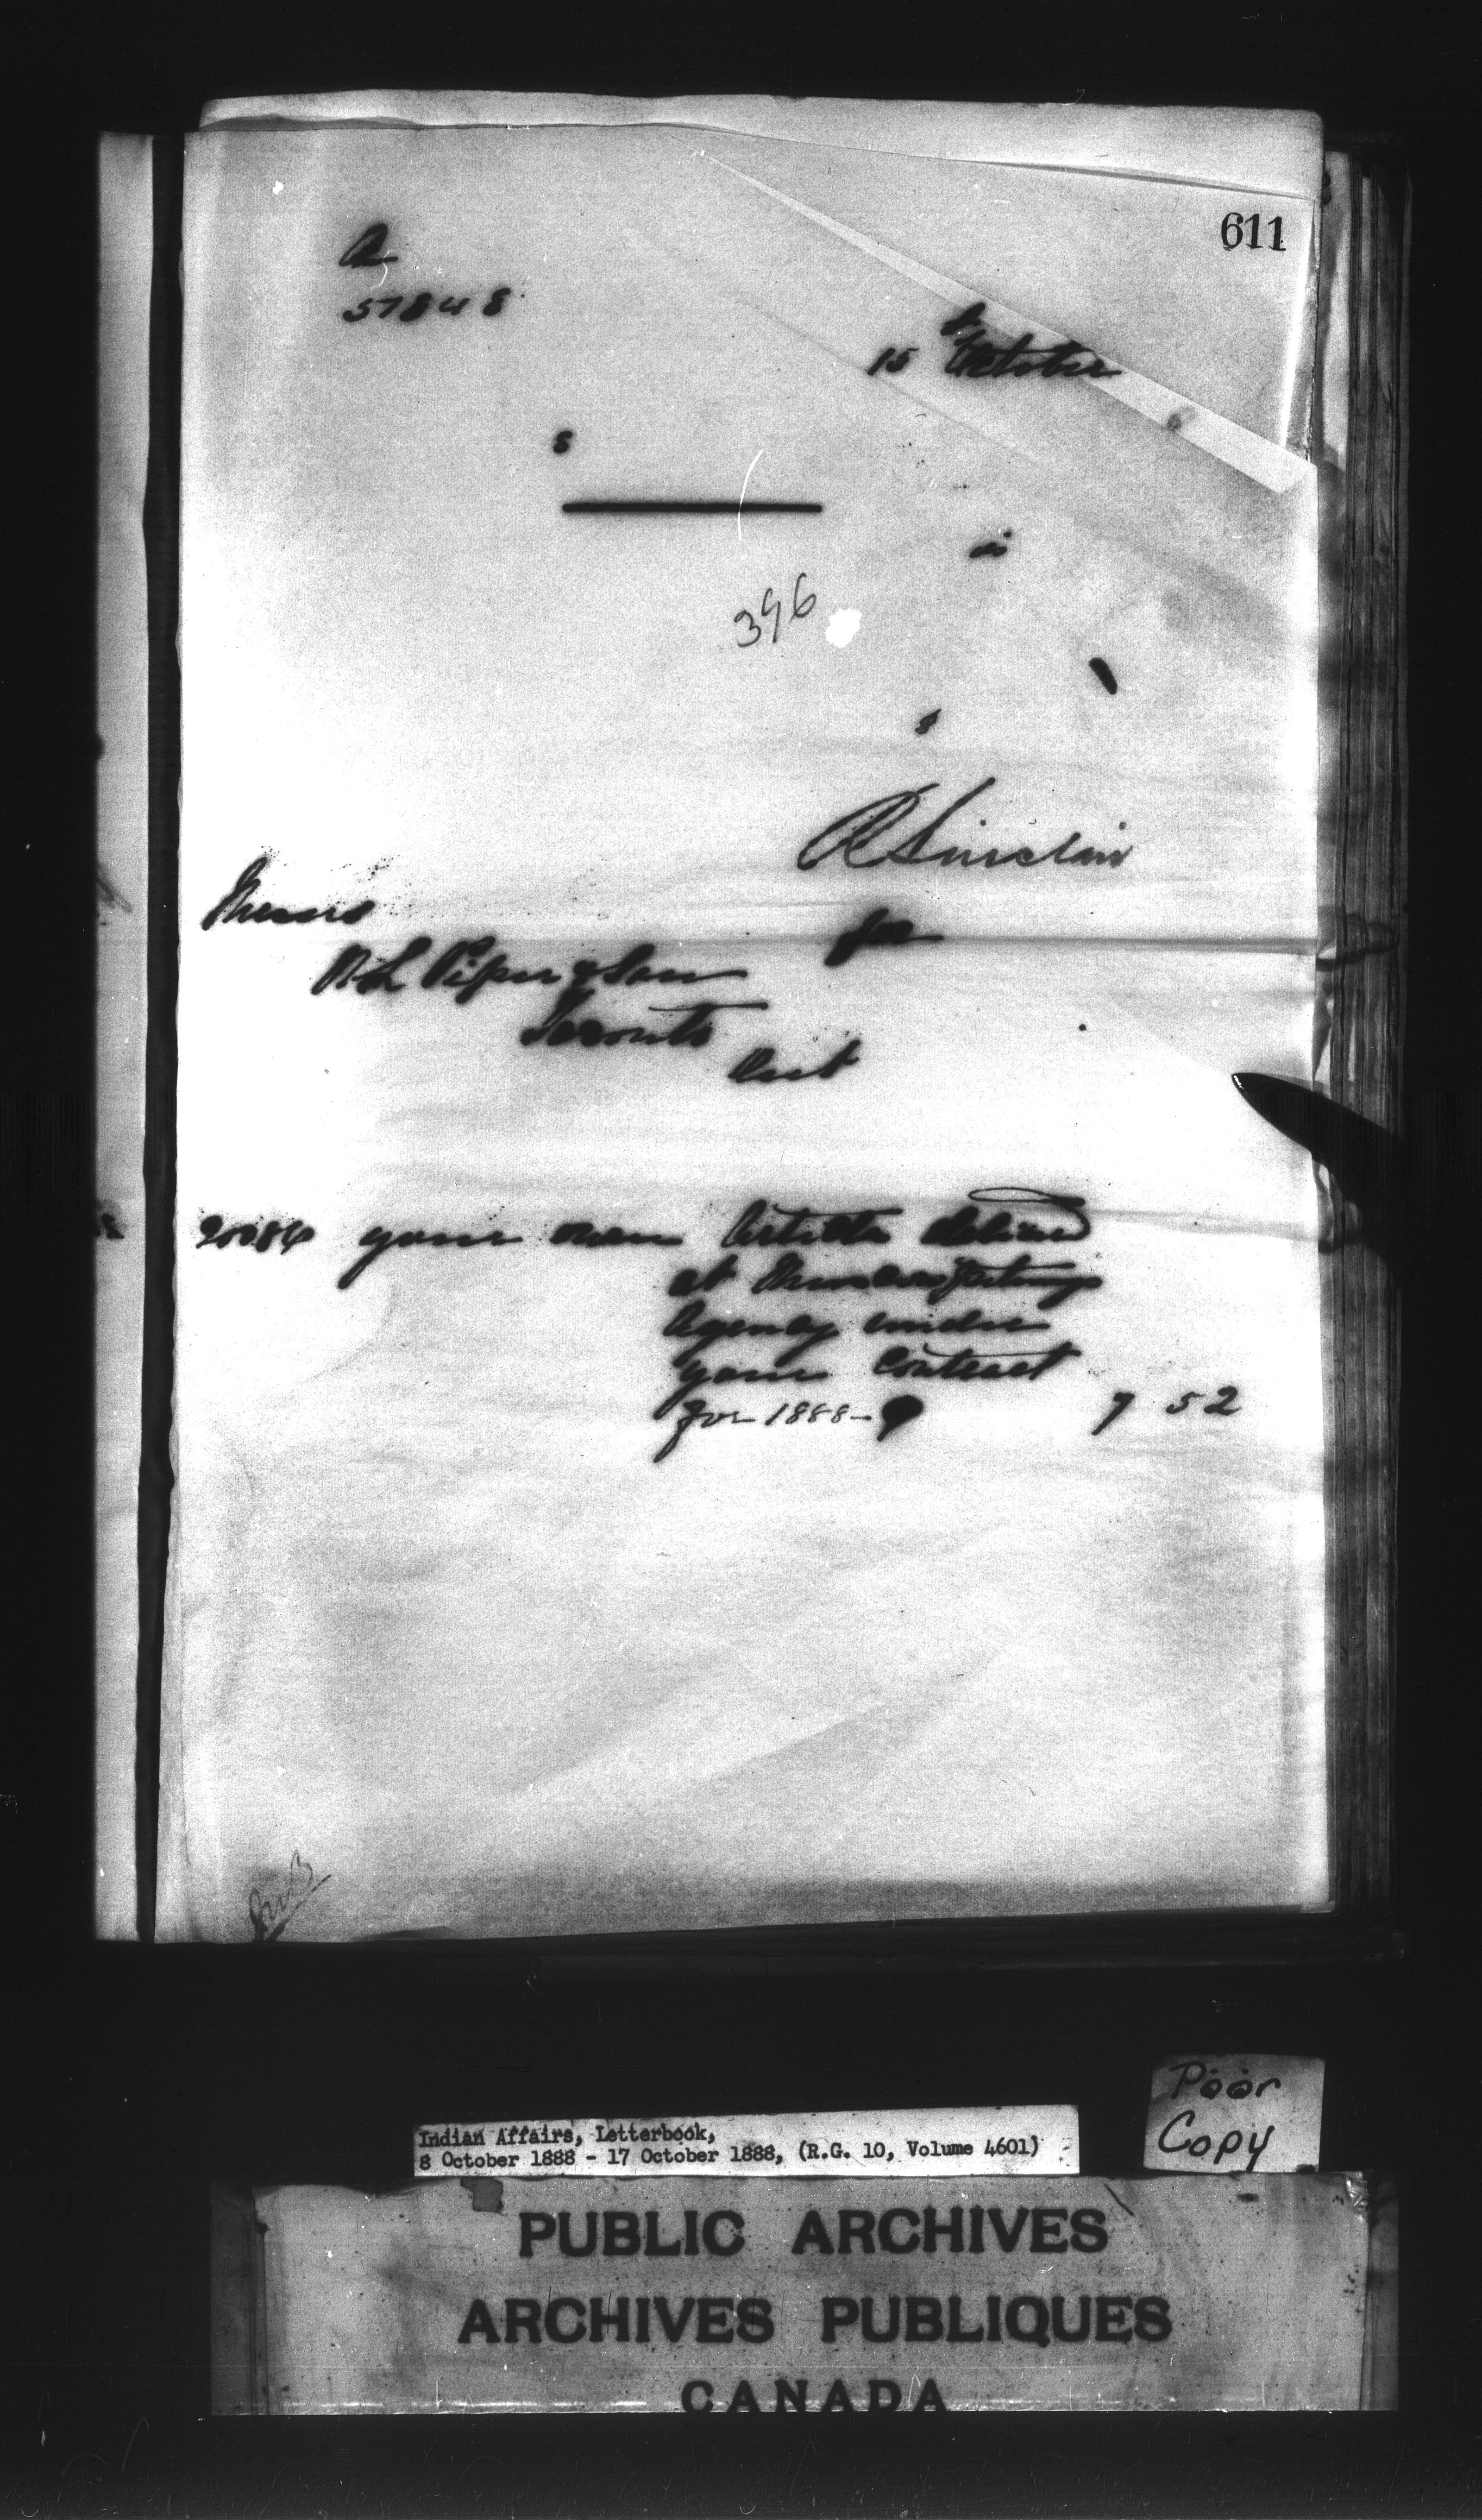 611
A
57848
15 October
s
396
s
R Sinclair
for
Messrs
N L Piper & Son
Toronto
Ont
20086 your own Articles delived
at Muscowpetungs
Agency under
your Contract
for 1888-9 7 52
Poor
Copy
Indian Affairs, Letterbook,
8 October 1888 - 17 October 1888, (R.G. 10, Volume 4601)
PUBLIC ARCHIVES
ARCHIVES PUBLIQUES
CANADA